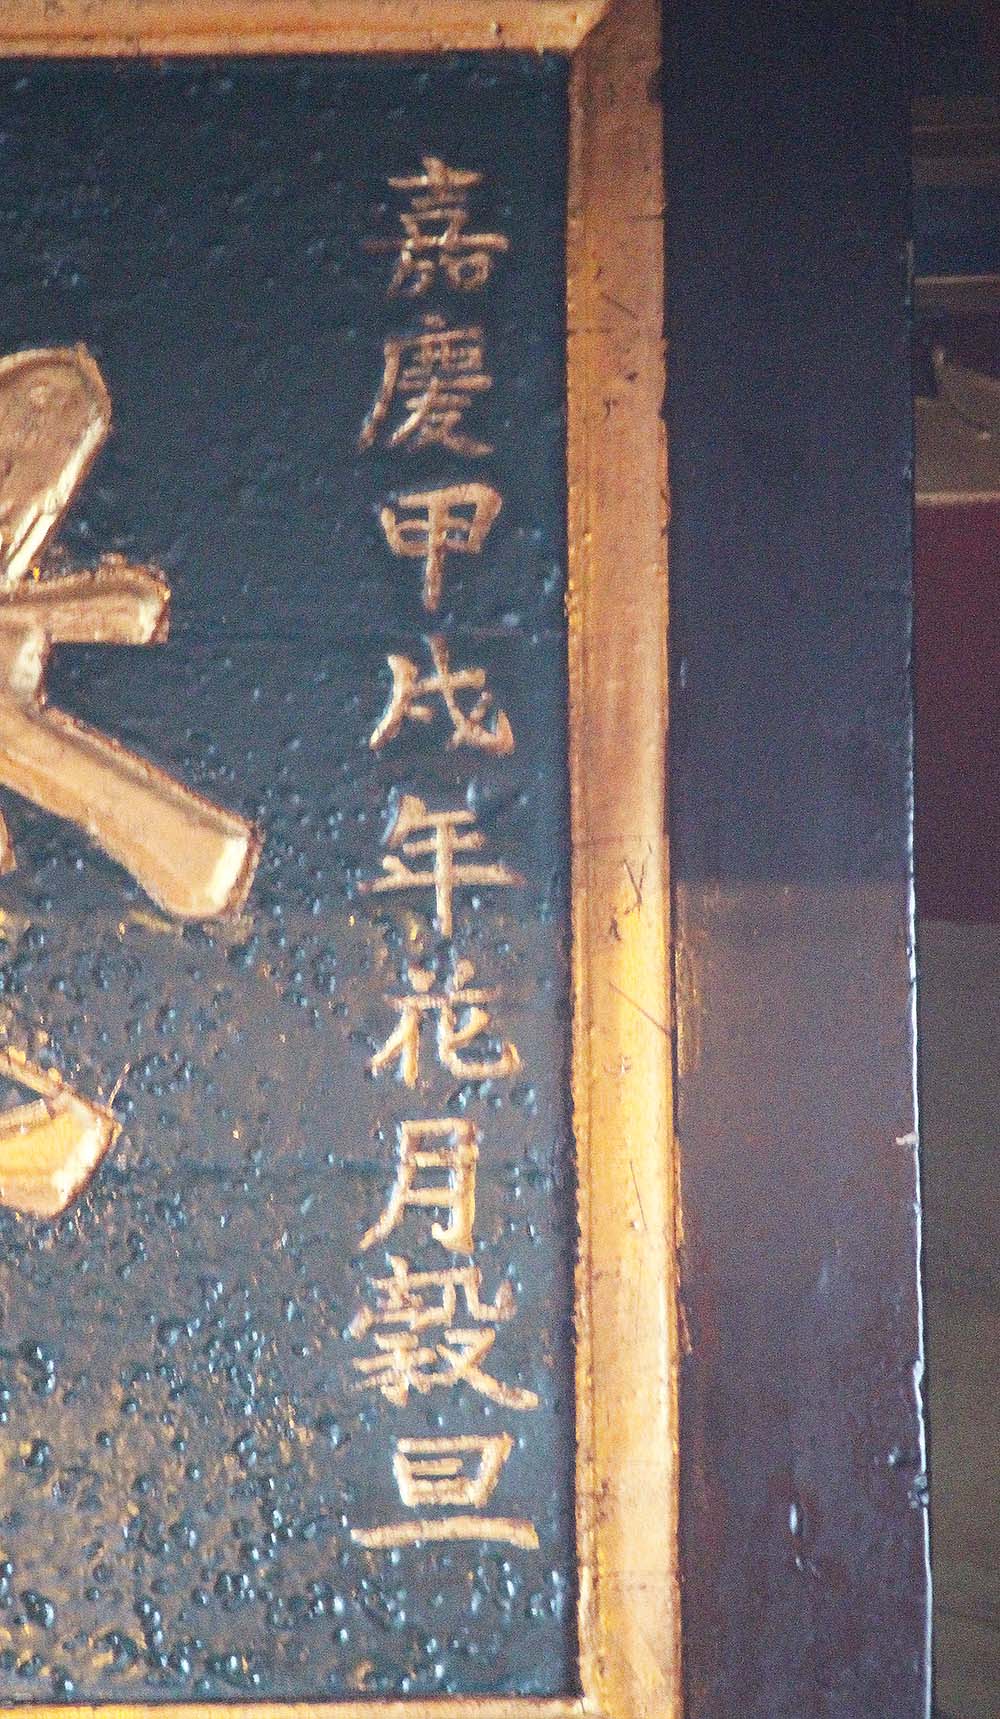 嘉慶甲戌年花月穀旦